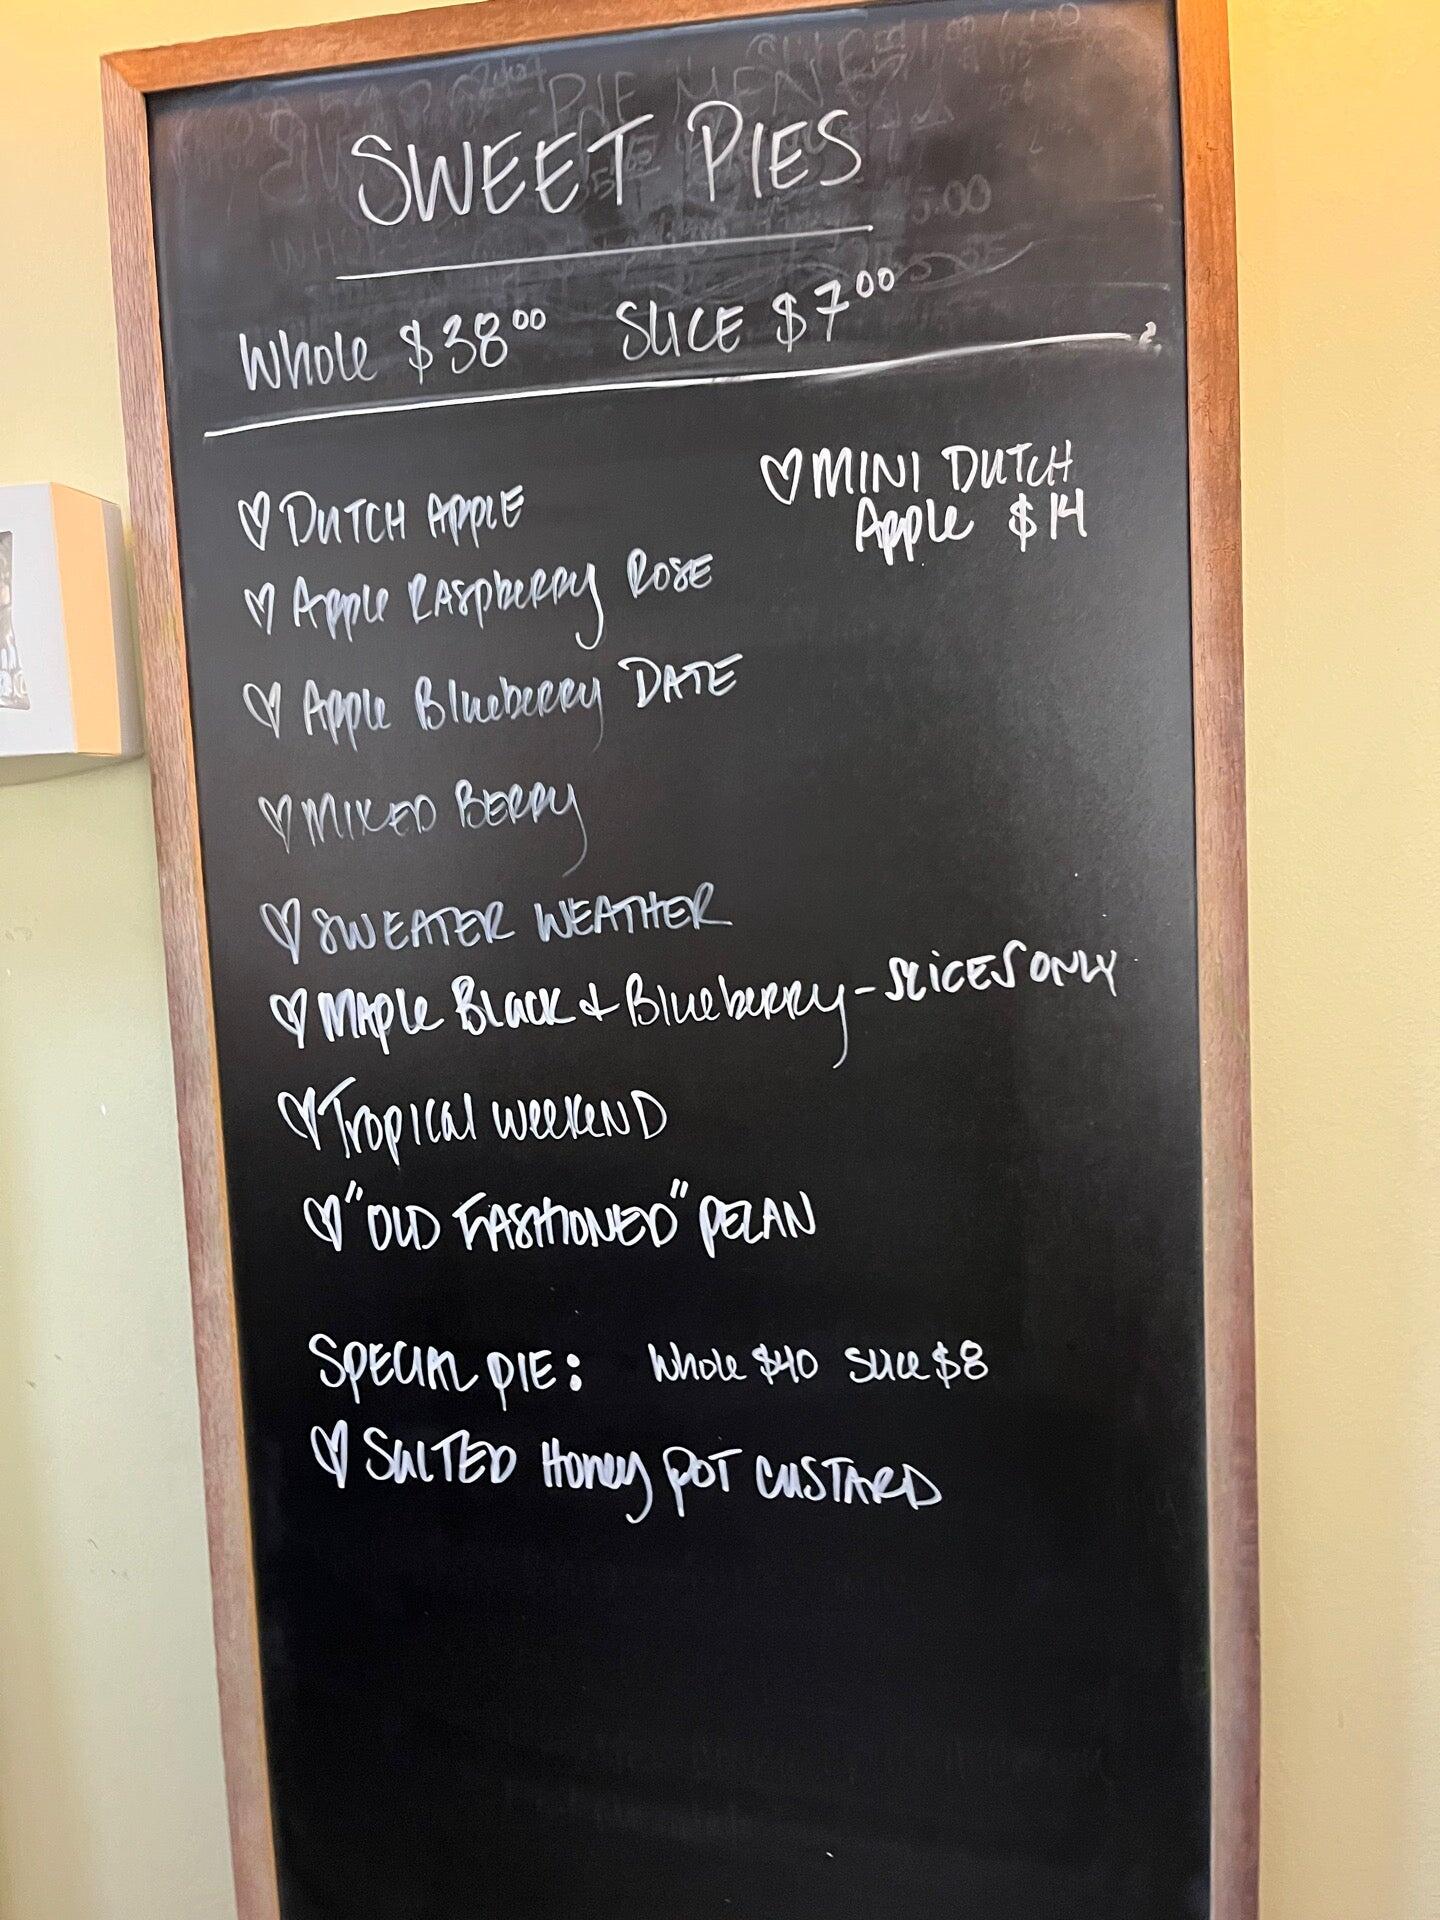 SWEET PIES
Whole $38.00 SLICE $7.00
♡ DUTCH APPLE
♡ MINI DUTCH
Apple $14
♡ Apple RASpberry ROSE
♡ Apple Blueberry DATE
♡ MIXED BERRY
♡ SWEATER WEATHER
♡ MAPle BLACK & Blueberry - SLiCES ONLY
♡ Tropical weekEND
♡ "OLD FASHIONED" PECAN
SPECIAL PIE: Whole $40 Slice $8
♡ SALTED Honey POT CUSTARD